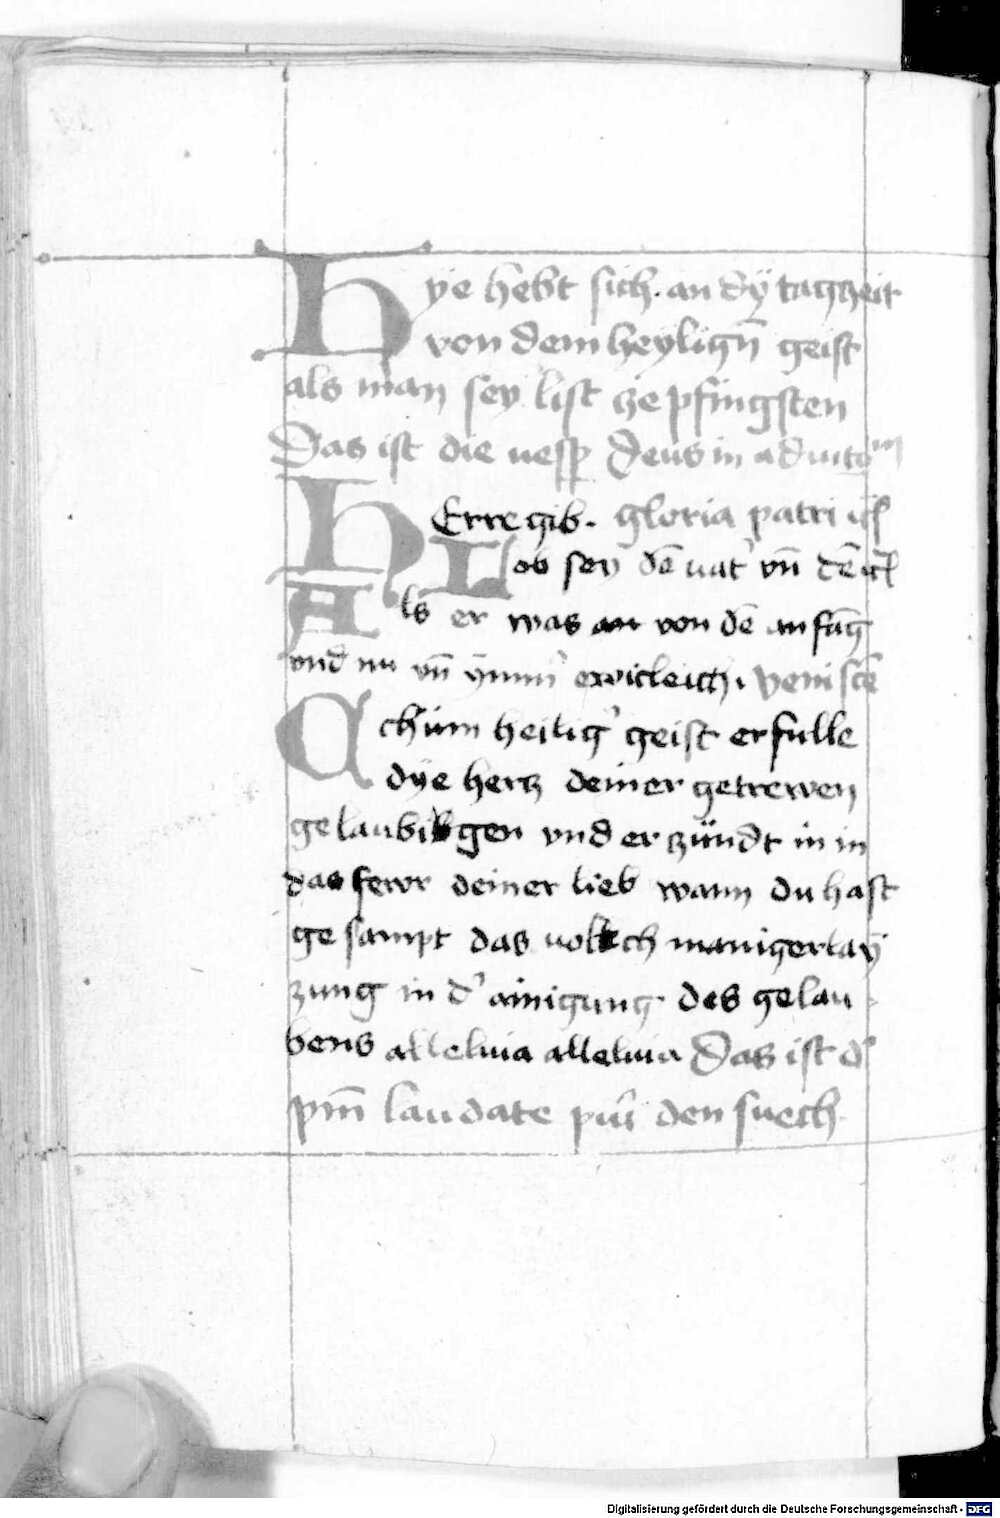 Hye hebt sich. an dÿ tagzeit
von dem heyligñ geist
als man sey list ze pfingsten
Das ist die uesp Deus in adiuto
HErre gib. gloria patri
Lob sey dē uat' vn̄ dē
Als er was an von dē anfāg
vnd nu vn̄ ewicleich. veni scē
Achum heilig' geist erfulle
dye hertz deiner getrewen
gelaubigen vnd erzündt in in
das fewr deiner lieb wann du hast
gesampt das uolkch manigerlaÿ
zung in d' ainigung des gelau
bens alleluia alleluia Das ist d'
pm̄ laudate den suech
Digitalisierung gefördert durch die Deutsche Forschungsgemeinschaft - DFG